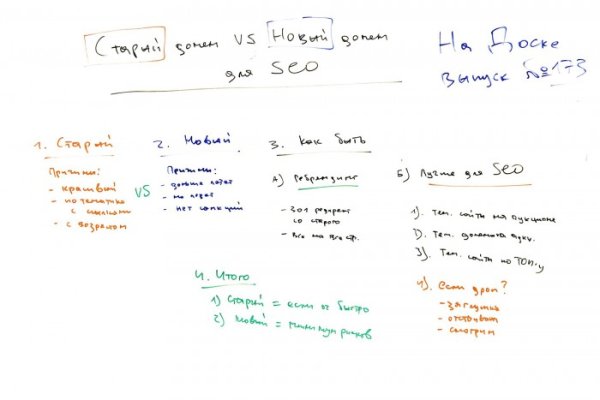 Старый домен VS Новый домен
для SEO
На Доске
выпуск №173
1. Старый
Причины:
- красивый
- по тематике
с ссылками
- с возрастом
VS
2. Новый
Причины:
- дольше
- нет санкций
3. Как быть
А) Ребрендинг
- 301 редирект
со старого
- Все на все стр.
Б) Лучше для SEO
1). Тем. сайты на аукционе
2). Тем. домена аукц.
3). Тем. сайты по ТОП-у
4). если дроп?
- заглушка
- отстоится
- смотрим
4. Итого
1) Старый = если оч быстро
2) Новый = минимум рисков